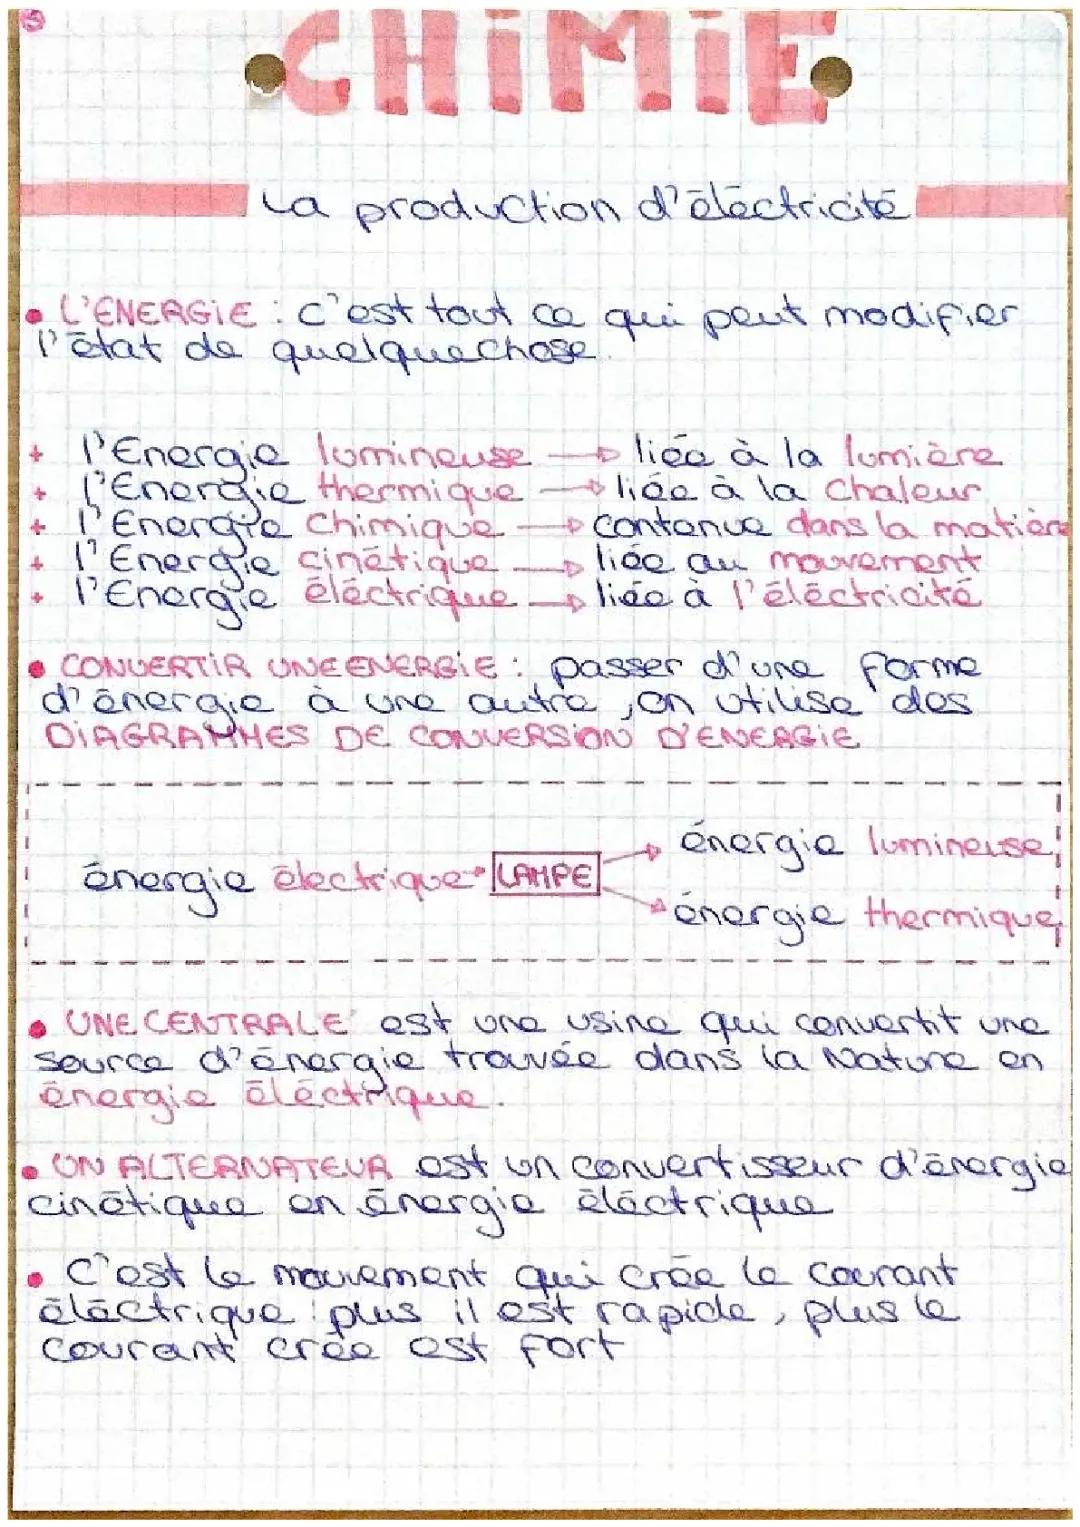 CHIMIE
La production d'éléctricité
• L'ENERGIE : c'est tout ce qui peut modifier
l'état de quelquechose.
+ l'Energie lumineuse → liée à la lumière
+ l'Energie thermique → liée à la chaleur
+ l'Energie chimique → contenue dans la matière
+ l'Energie cinétique → liée au mouvement
+ l'Energie éléctrique → liée à l'éléctricité
• CONVERTIR UNE ENERGIE : passer d'une forme
d'énergie à une autre, on utilise des
DIAGRAMMES DE CONVERSION D'ENERGIE
énergie lumineuse
énergie électrique → LAMPE
énergie thermique
• UNE CENTRALE est une usine qui convertit une
source d'énergie trouvée dans la Nature en
énergie éléctrique.
• UN ALTERNATEUR est un convertisseur d'énergie
cinétique en énergie éléctrique
• C'est le mouvement qui crée le courant
éléctrique : plus il est rapide, plus le
courant crée est fort